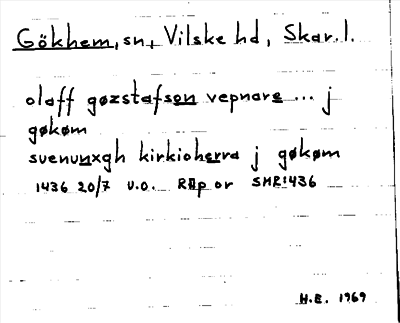 Gökhem, sn, Vilske hd, Skar. l.
olaff gøzstafson vepnare ... j
gøkøm
suenunxgh kirkioherra j gøkøm
1436 20/7 u.o. RAp or SMR 1436
H.E. 1969